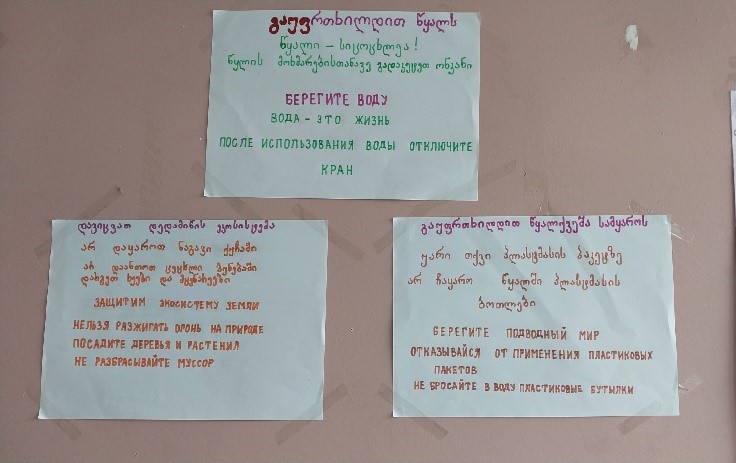 გაუფრთხილდით წყალს
წყალი - სიცოცხლეა!
წყლის მოხმარებისთანავე გადაკეტეთ ონკანი
БЕРЕГИТЕ ВОДУ
ВОДА - ЭТО ЖИЗНЬ
ПОСЛЕ ИСПОЛЬЗОВАНИЯ ВОДЫ ОТКЛЮЧИТЕ
КРАН
დავიცვათ დედამიწის ეკოსისტემა
არ დაყაროთ ნაგავი ქუჩაში
არ დაანთოთ ცეცხლი ბუნებაში
დარგეთ ხეები და მცენარეები
ЗАЩИТИМ ЭКОСИСТЕМУ ЗЕМЛИ
НЕЛЬЗЯ РАЗЖИГАТЬ ОГОНЬ НА ПРИРОДЕ
ПОСАДИТЕ ДЕРЕВЬЯ И РАСТЕНИЯ
НЕ РАЗБРАСЫВАЙТЕ МУССОР
გაუფრთხილდით წყალქვეშა სამყაროს
უარი თქვი პლასტმასის პაკეტზე
არ ჩაყარო წყალში პლასტმასის
ბოთლები
БЕРЕГИТЕ ПОДВОДНЫЙ МИР
ОТКАЗЫВАЙСЯ ОТ ПРИМЕНЕНИЯ ПЛАСТИКОВЫХ
ПАКЕТОВ
НЕ БРОСАЙТЕ В ВОДУ ПЛАСТИКОВЫЕ БУТЫЛКИ